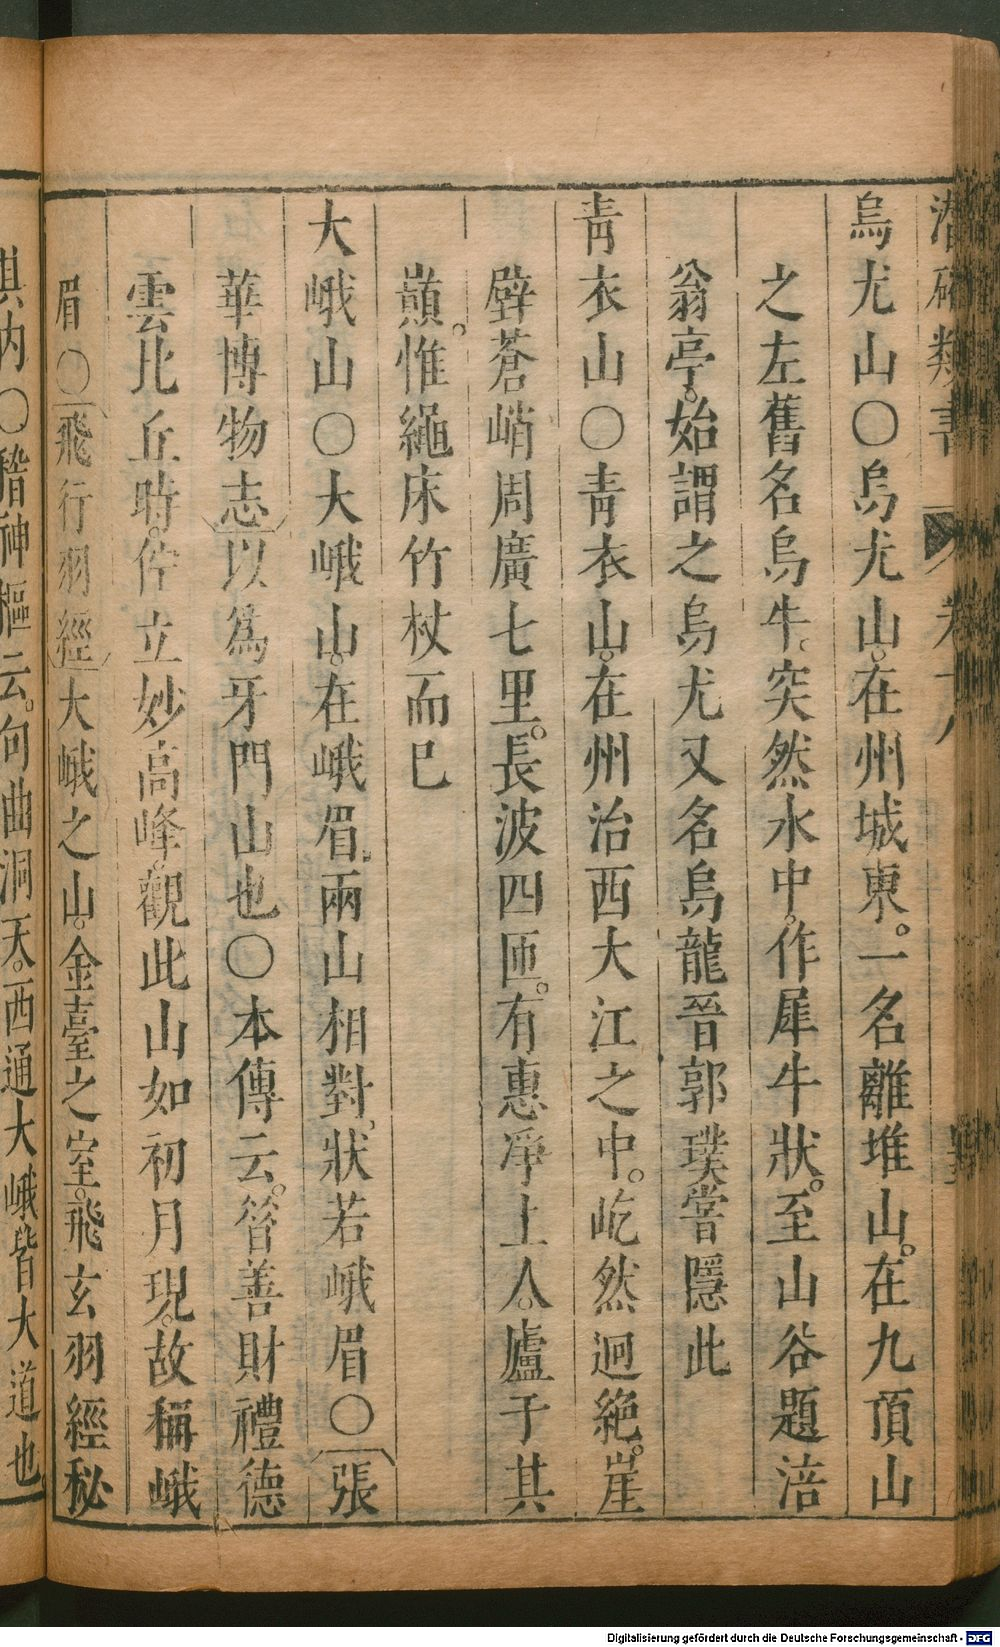 潛確類書 卷十八
烏尤山〇烏尤山在州城東。一名離堆山。在九頂山
之左舊名烏牛。突然水中。作犀牛狀。至山谷題涪
翁亭。始謂之烏尤又名烏龍晉郭璞嘗隱此
靑衣山〇靑衣山。在州治西大江之中。屹然迥絕。崖
壁蒼峭周廣七里。長波四匝。有惠淨上人。廬于其
巔。惟繩床竹杖而已
大峨山〇大峨山。在峨眉。兩山相對。狀若峨眉〇張
華博物志以爲牙門山也〇本傳云。昝善財禮德
雲比丘時。佇立妙高峰。觀此山如初月現。故稱峨
眉〇飛行羽經大峨之山。金臺之室。飛玄羽經秘
其内〇稽神樞云。句曲洞天。西通大峨皆大道也
Digitalisierung gefördert durch die Deutsche Forschungsgemeinschaft - DFG